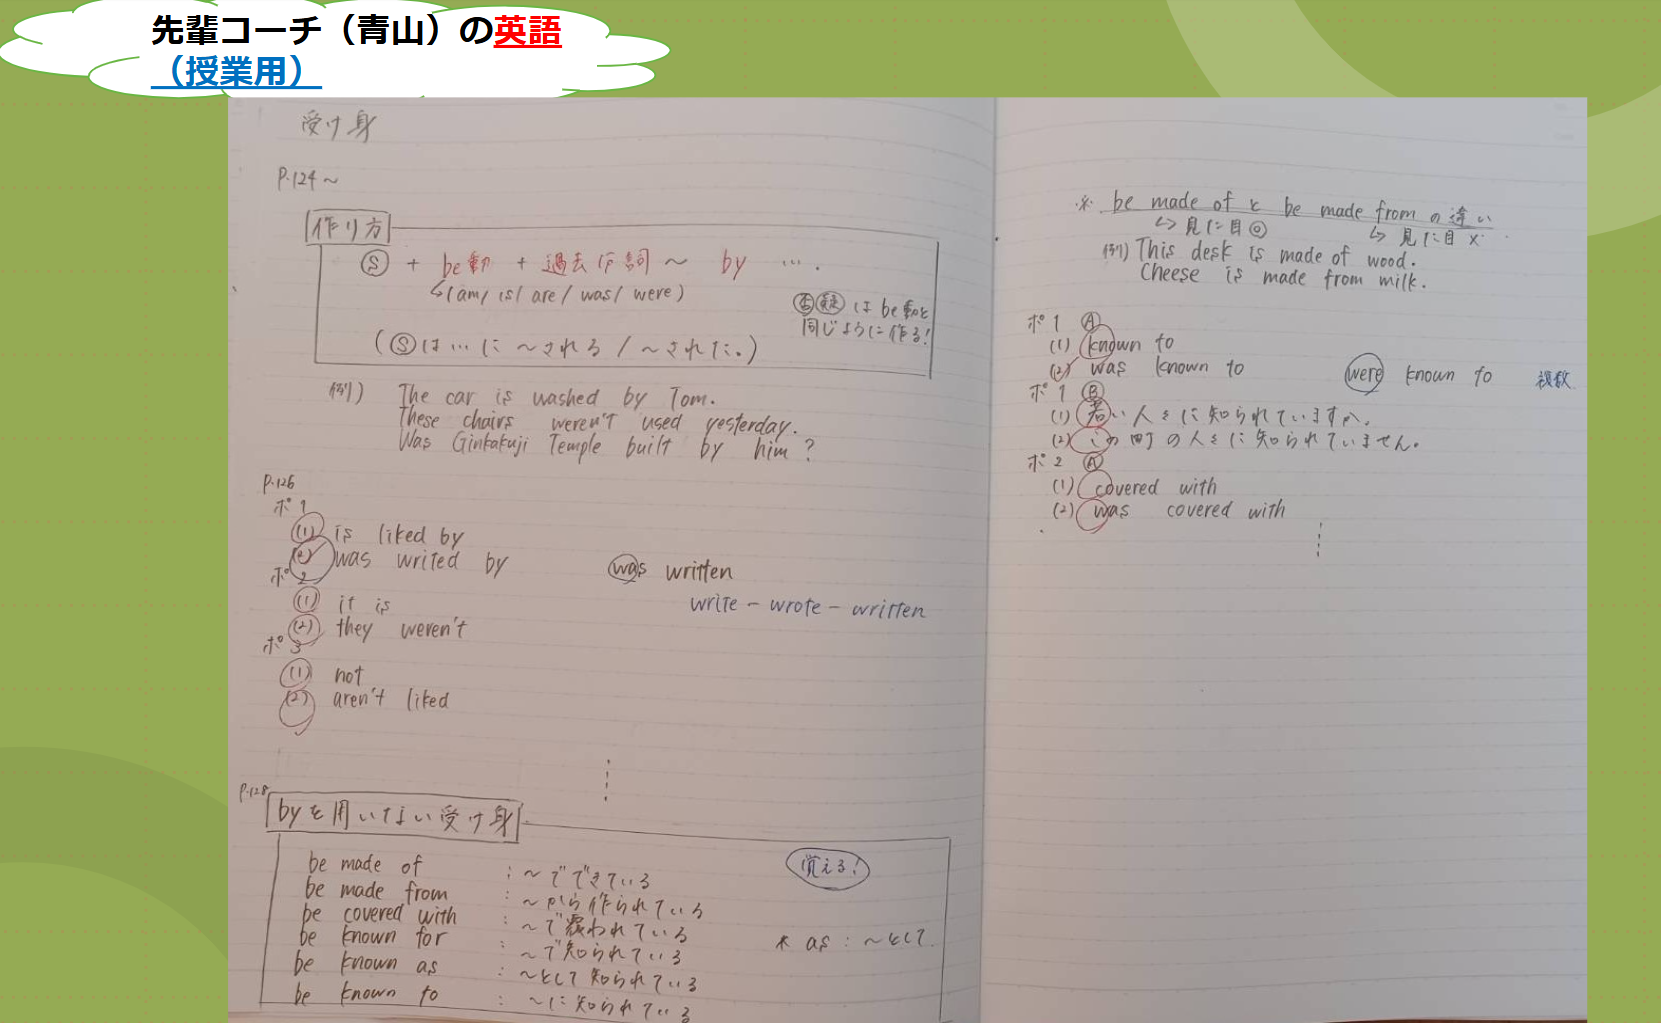 先輩コーチ（青山）の英語
（授業用）
受け身
P.124～
作り方
Ⓢ + be動 + 過去分詞 ～ by ….
↳(am/is/are/was/were)
否疑はbe動と
同じように作る!
(Ⓢは…に～される/～された。)
例) The car is washed by Tom.
These chairs weren't used yesterday.
Was Ginkakuji Temple built by him?
P.126
ポ1
(1) is liked by
(2) was writed by was written
write - wrote - written
ポ2
(1) it is
(2) they weren't
ポ3
(1) not
(2) aren't liked
P.128
byを用いない受け身
覚える!
be made of : ～でできている
be made from : ～から作られている
be covered with : ～で覆われている
be known for : ～で知られている
* as : ～として
be known as : ～として知られている
be known to : ～に知られている
※ be made of と be made from の違い
↳見た目◎ ↳見た目×
例) This desk is made of wood.
Cheese is made from milk.
ポ1 Ⓐ
(1) known to
(2) was known to were known to 複数
ポ1 Ⓑ
(1) 若い人々に知られていますか。
(2) この町の人々に知られていません。
ポ2 Ⓐ
(1) covered with
(2) was covered with